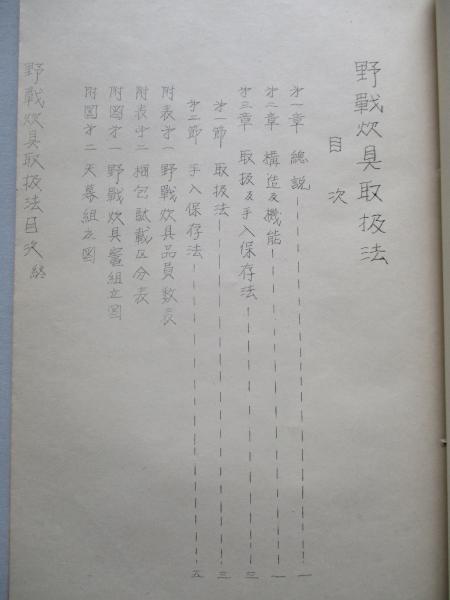 野戰炊具取扱法
目次
才一章 總説 一
才二章 構造及機能 一
才三章 取扱及手入保存法 三
才一節 取扱法 三
才二節 手入保存法 五
附表才一 野戰炊具品員数表
附表才二 梱包試載区分表
附図才一 野戰炊具竈組立図
附図才二 天幕組立図
野戰炊具取扱法目次終